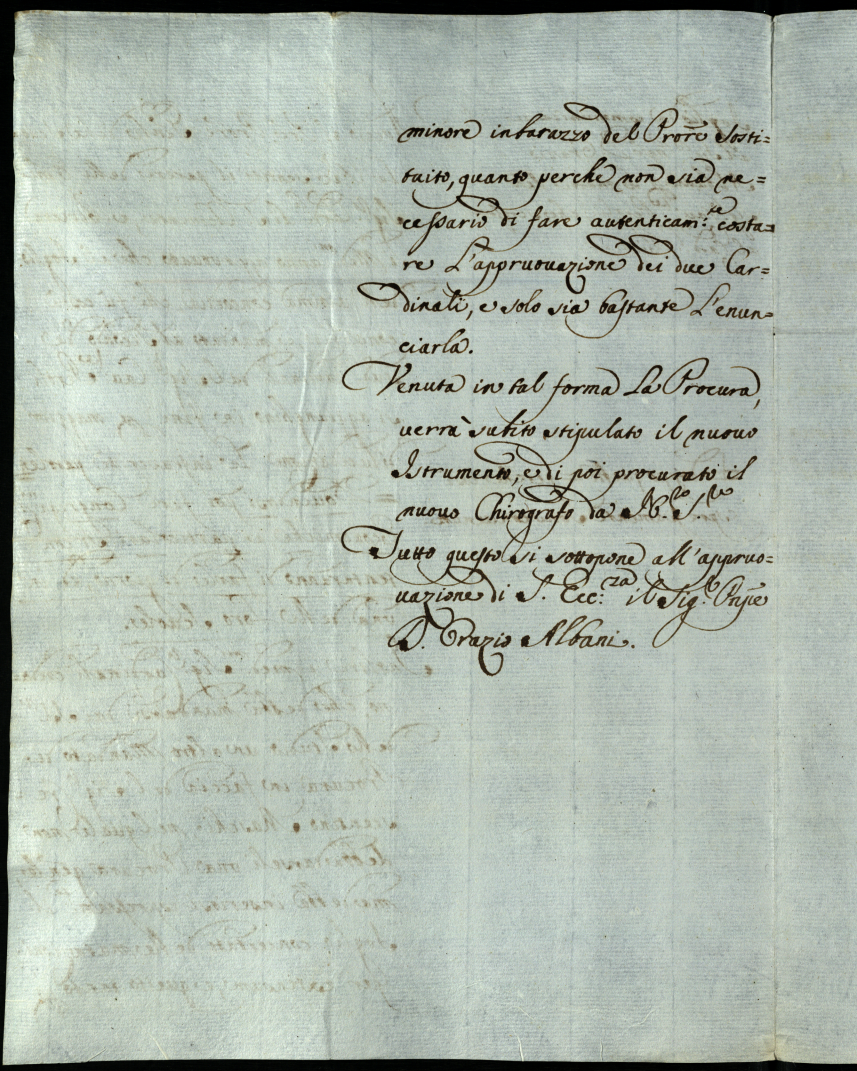 minore inbarazzo del Prore Sosti=
tuito, quanto perche non sia ne=
cessario di fare autenticam:te costa=
re L'appruovazione dei due Car=
dinali, e solo sia bastante L'enun=
ciarla.
Venuta in tal forma La Procura,
verrà subito stipulato il nuovo
Istrumento, e di poi procurato il
nuovo Chirografo da N. S.re
Tutto questo si sottopone all'appruo=
vazione di S. Ecc:za il Sig:r Pnpe
D. Orazio Albani.